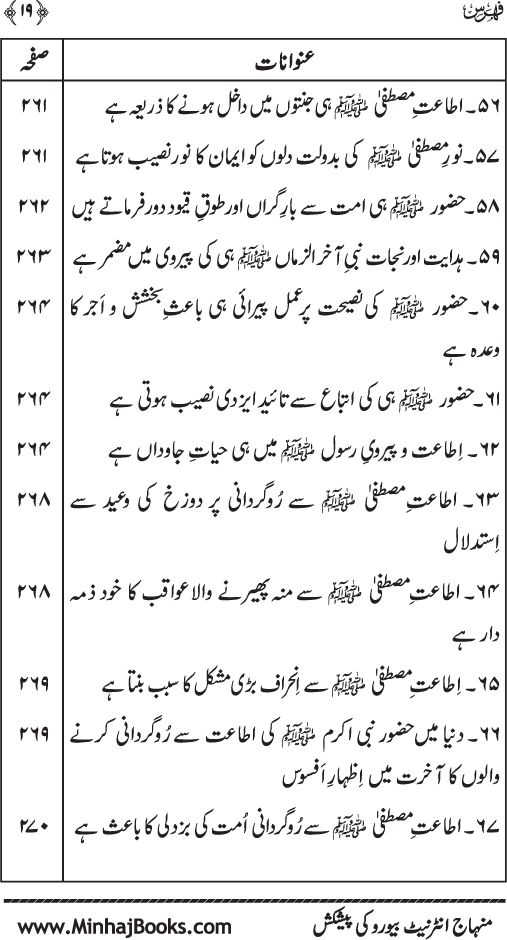 فہرس ﴿۱۹﴾
عنوانات صفحہ
۵۶۔ اطاعتِ مصطفیٰ ﷺ ہی جنتوں میں داخل ہونے کا ذریعہ ہے ۲۶۱
۵۷۔ نورِ مصطفیٰ ﷺ کی بدولت دلوں کو ایمان کا نور نصیب ہوتا ہے ۲۶۱
۵۸۔ حضور ﷺ ہی امت سے بارِ گراں اور طوقِ قیود دور فرماتے ہیں ۲۶۲
۵۹۔ ہدایت اور نجات نبیِ آخر الزماں ﷺ ہی کی پیروی میں مضمر ہے ۲۶۳
۶۰۔ حضور ﷺ کی نصیحت پر عمل پیرائی ہی باعثِ بخشش و اَجر کا ۲۶۴
وعدہ ہے
۶۱۔ حضور ﷺ ہی کی اتباع سے تائیدِ ایزدی نصیب ہوتی ہے ۲۶۴
۶۲۔ اِطاعت و پیرویِ رسول ﷺ میں ہی حیاتِ جاوداں ہے ۲۶۴
۶۳۔ اطاعتِ مصطفیٰ ﷺ سے رُوگردانی پر دوزخ کی وعید سے ۲۶۸
اِستدلال
۶۴۔ اطاعتِ مصطفیٰ ﷺ سے منہ پھیرنے والا عواقب کا خود ذمہ ۲۶۸
دار ہے
۶۵۔ اِطاعتِ مصطفیٰ ﷺ سے اِنحراف بڑی مشکل کا سبب بنتا ہے ۲۶۹
۶۶۔ دنیا میں حضور نبی اکرم ﷺ کی اطاعت سے رُوگردانی کرنے ۲۶۹
والوں کا آخرت میں اِظہارِ اَفسوس
۶۷۔ اطاعتِ مصطفیٰ ﷺ سے رُوگردانی اُمت کی بزدلی کا باعث ہے ۲۷۰
منہاج انٹرنیٹ بیورو کی پیشکش www.MinhajBooks.com